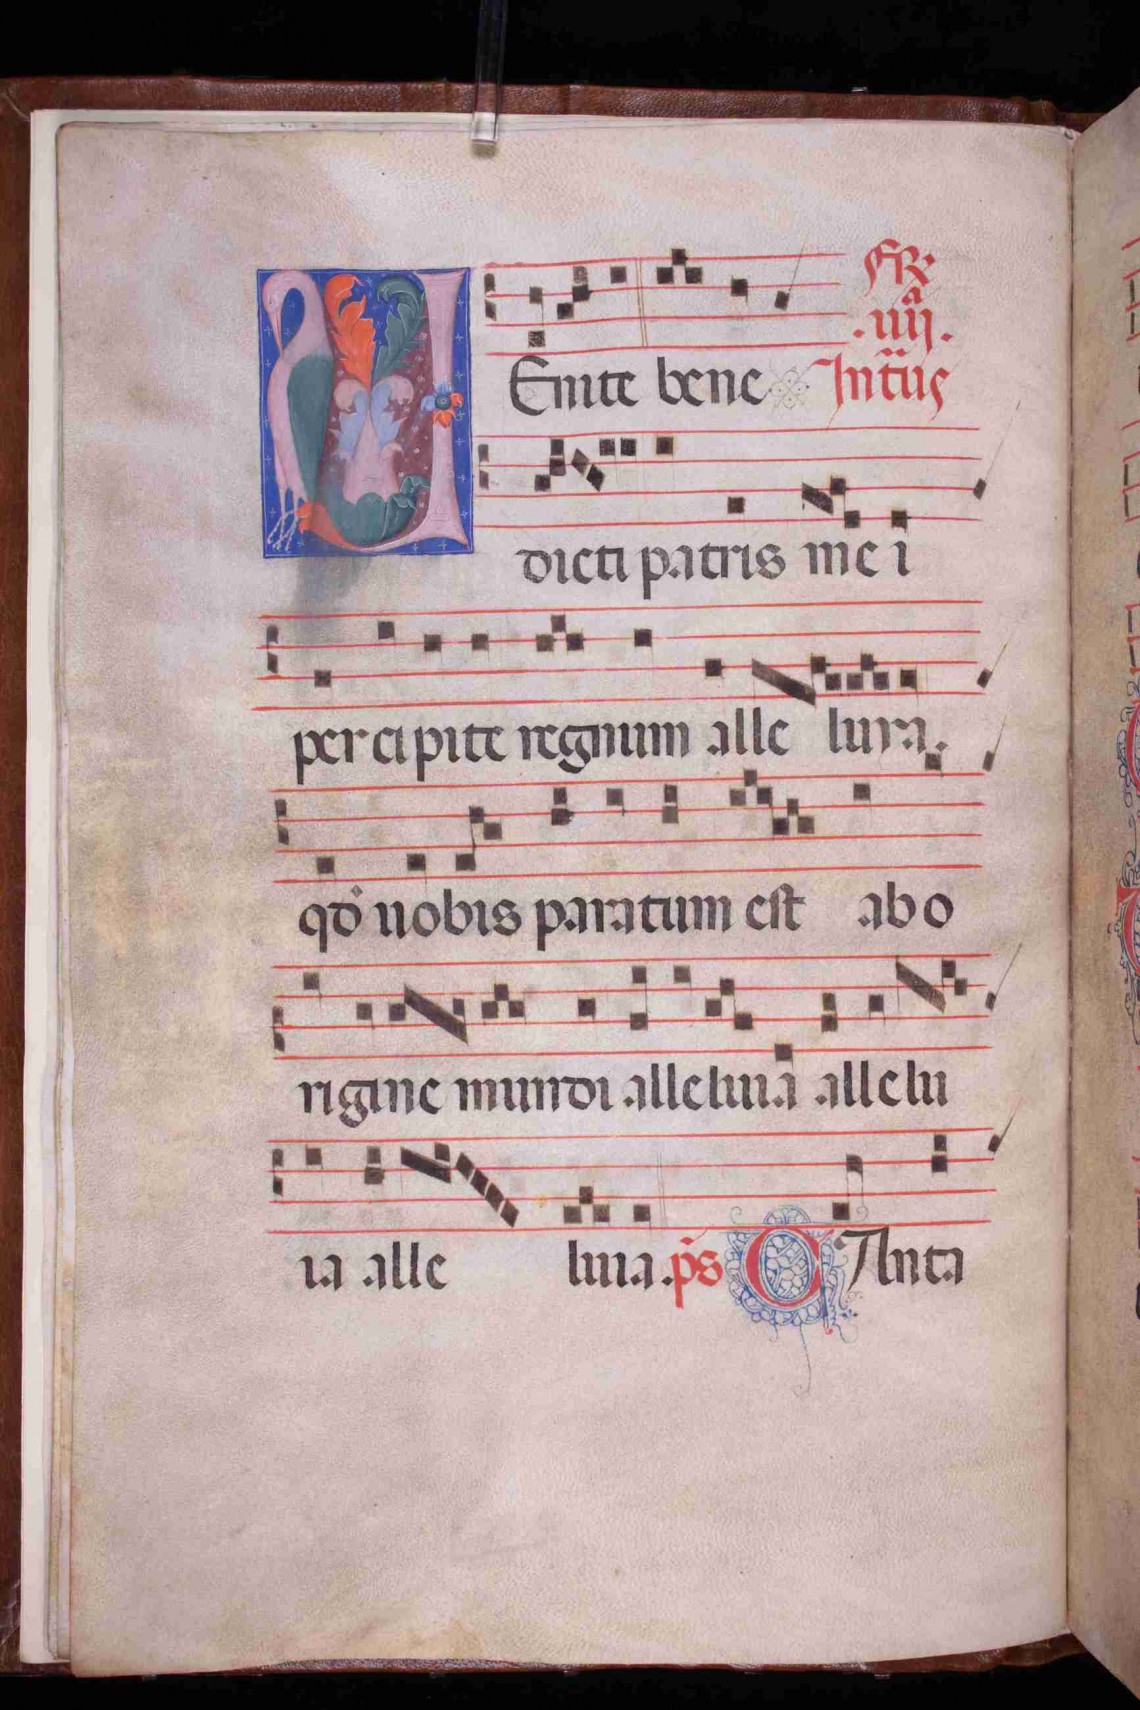 FR
.iiij.a
UEnite bene Intus
dicti patris me i
per ci pite regnum alle luya.
qd uobis paratum est ab o
rigine mundi alleluia allelu
ia alle luia. ps CAnta